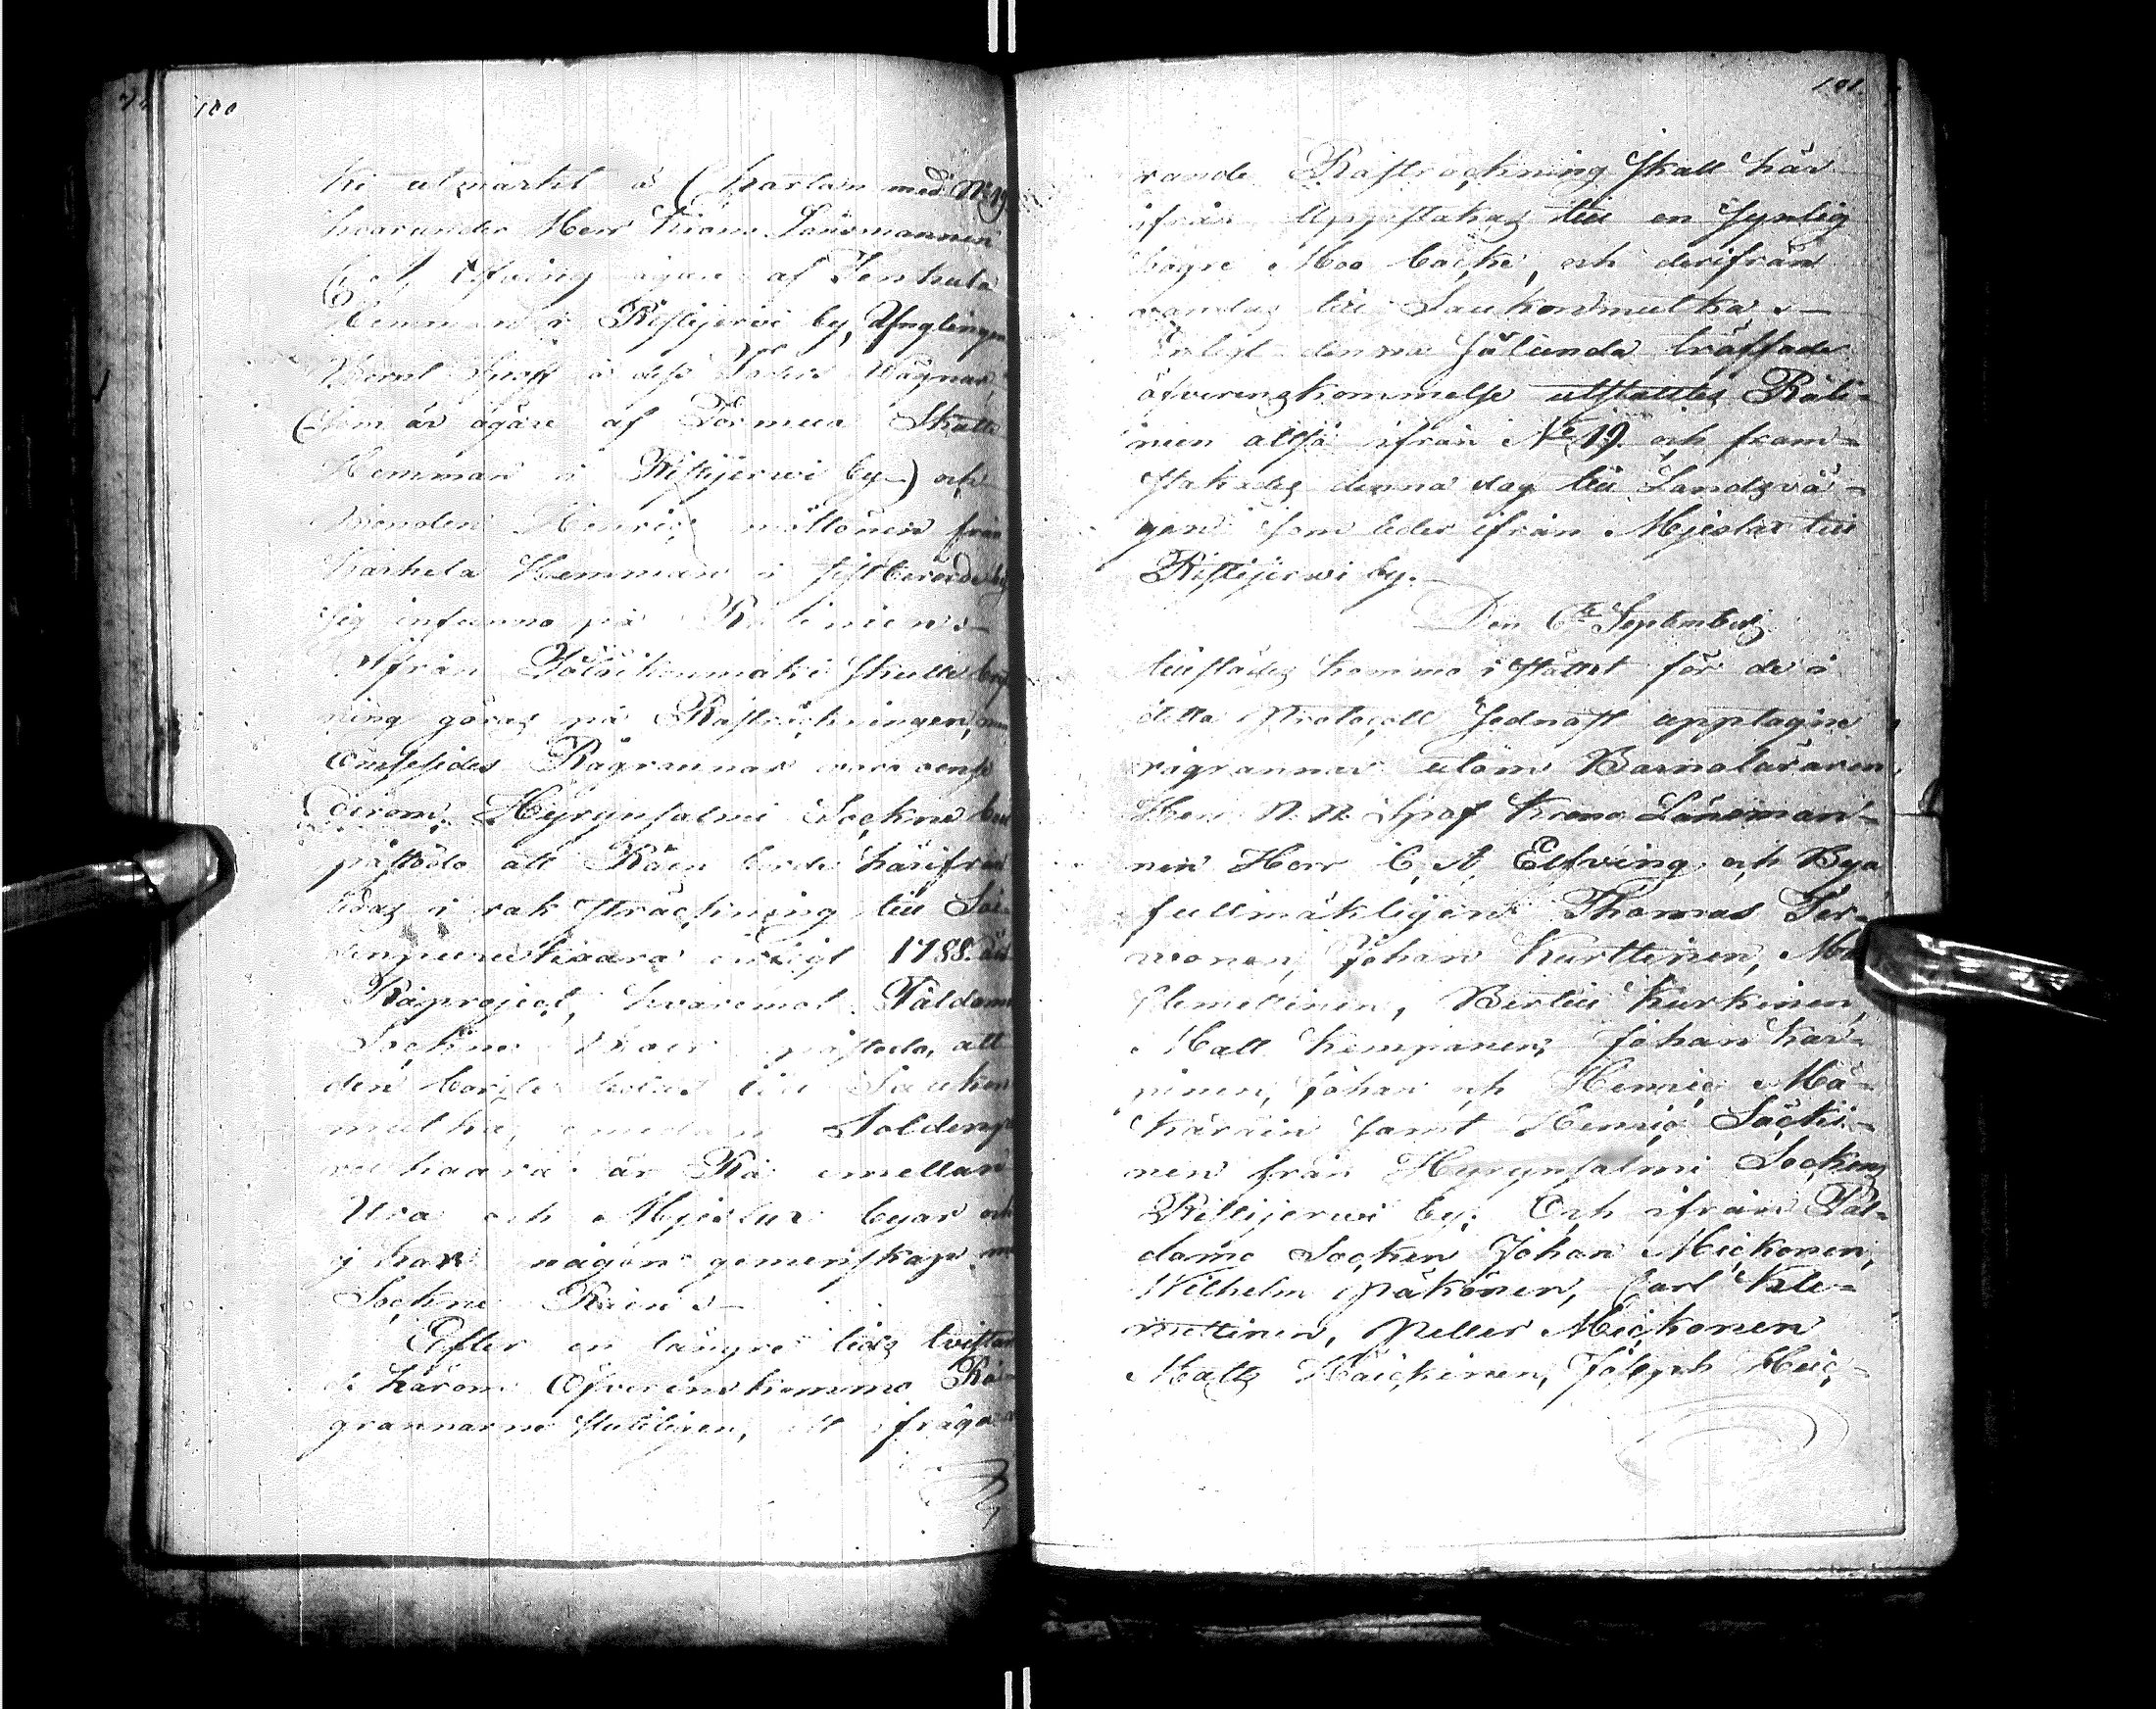 100
ki utmärkt å Chartan med No 19
hvarunder Herr Krono Länsmannen
C. A. Elfving ägare af Tenhula
Hemman i Ristijerwi by, Ynglingen
Bernt å dess Faders Wägnar,
(Som är ägare af Törmua Skatte
Hemman i Ristijerwi by) och
Bonden Henric Möttönen från
Karhela Hemman i sistberörde by
sig infunno på Rålinien.
Ifrån skulle
ning göras på Råsträckningen,
Ömsesides Rågrannar voro oense
derom. Hyrynsalmi Sockne
påstodo att Råen borde härifrån
ledas i rak sträckning till Soi-
denpuruhaara enligt 1788 års
Råproject, hvaremot Paldamo
Sockne Boer påstodo, att
den borde ledas till Saukon
mutka, emedan Soidenpu
ruhaara är Rå emellan
Uva och Mieslax byar och
ej har någon gemenskap med
Sockne Råen.
Efter en längre tids tvistan
de härom Öfverenskommo Rå-
grannarne slutligen, att ifrågava
101.
rande Råsträckning skall här
ifrån uppstakas till en synlig
högre Moo backe, och derifrån
vändas till Saukonmutka.
Enligt denna sålunda träffade
öfverenskommelse utstakades Råli-
nien altså ifrån No 19. och fram-
stakades denna dag till Landsvä-
gen som leder ifrån Mieslax till
Ristijerwi by.
Den 6te Septembris
tillstädes kommo i stället för de i
detta Protocoll sednast upptagne
rågrannar utom Barnaläraren
Herr N. N. Krono Länsman-
nen Herr C. A. Elfving och Bya
fullmäktigen Thomas Ter-
vonen, Johan Kurttinen, Mats
Klemettinen, Bertill Kurkinen,
Matt Kemppanen, Johan Kar-
pinen, Johan och Henric Mä-
käräin samt Henric Säcki-
nen från Hyrynsalmi Sockens
Ristijerwi by. Och ifrån Pal-
damo Socken Johan Mickonen,
Wilhelm Pääkönen, Carl Kle-
mettinen, Petter Mickonen
Matts Häickinen, Joseph Heic-